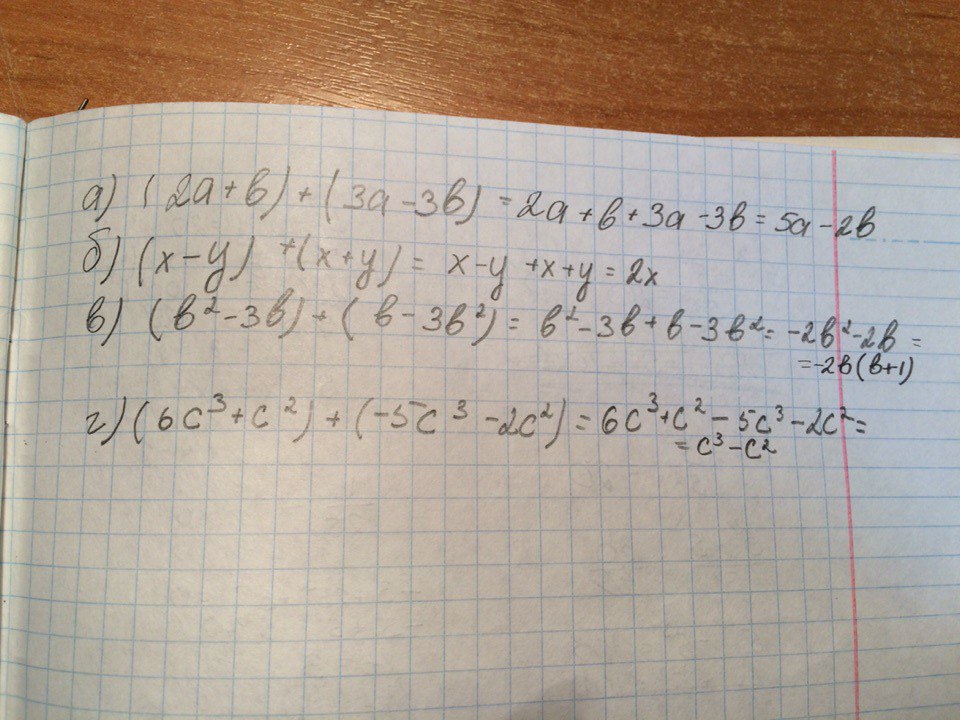 а) (2a+b)+(3a-3b) = 2a+b+3a-3b = 5a-2b
б) (x-y)+(x+y) = x-y+x+y = 2x
в) (b²-3b)+(b-3b²) = b²-3b+b-3b² = -2b²-2b =
= -2b(b+1)
г) (6c³+c²)+(-5c³-2c²) = 6c³+c²-5c³-2c² =
= c³-c²